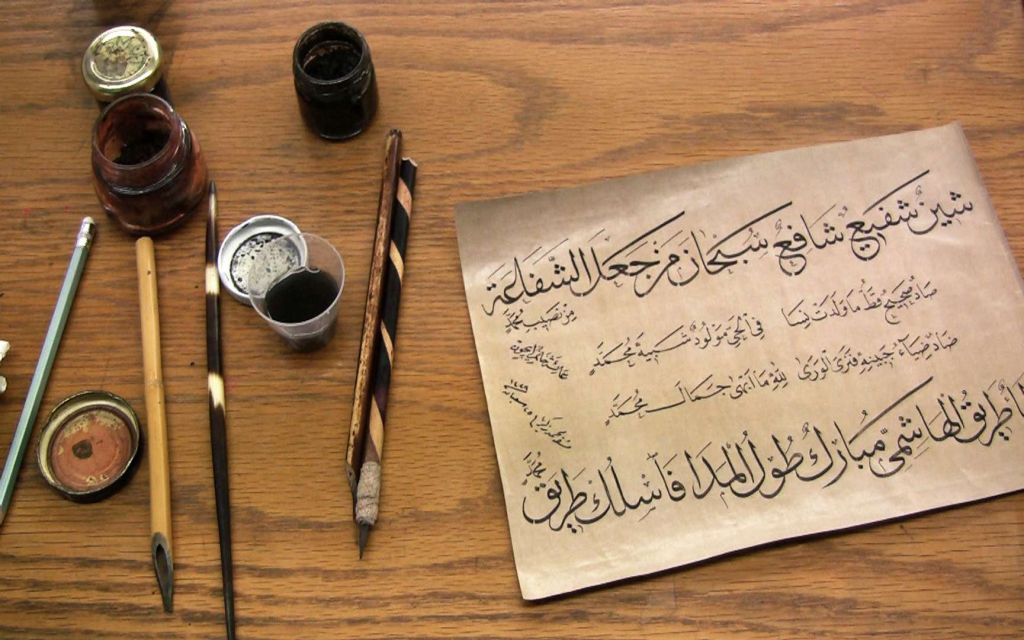 شين شفيع شافع سبحان من جعل الشفاعة
من نصيب محمد
صاد صحيح قط ما ولدت نسا في الحي مولود شبيه محمد
ضاد ضياء جبينه فتن الورى لله ما أبهى جمال محمد
طا طريق الهاشمي مبارك طول المدا فاسلك طريق
محمدا